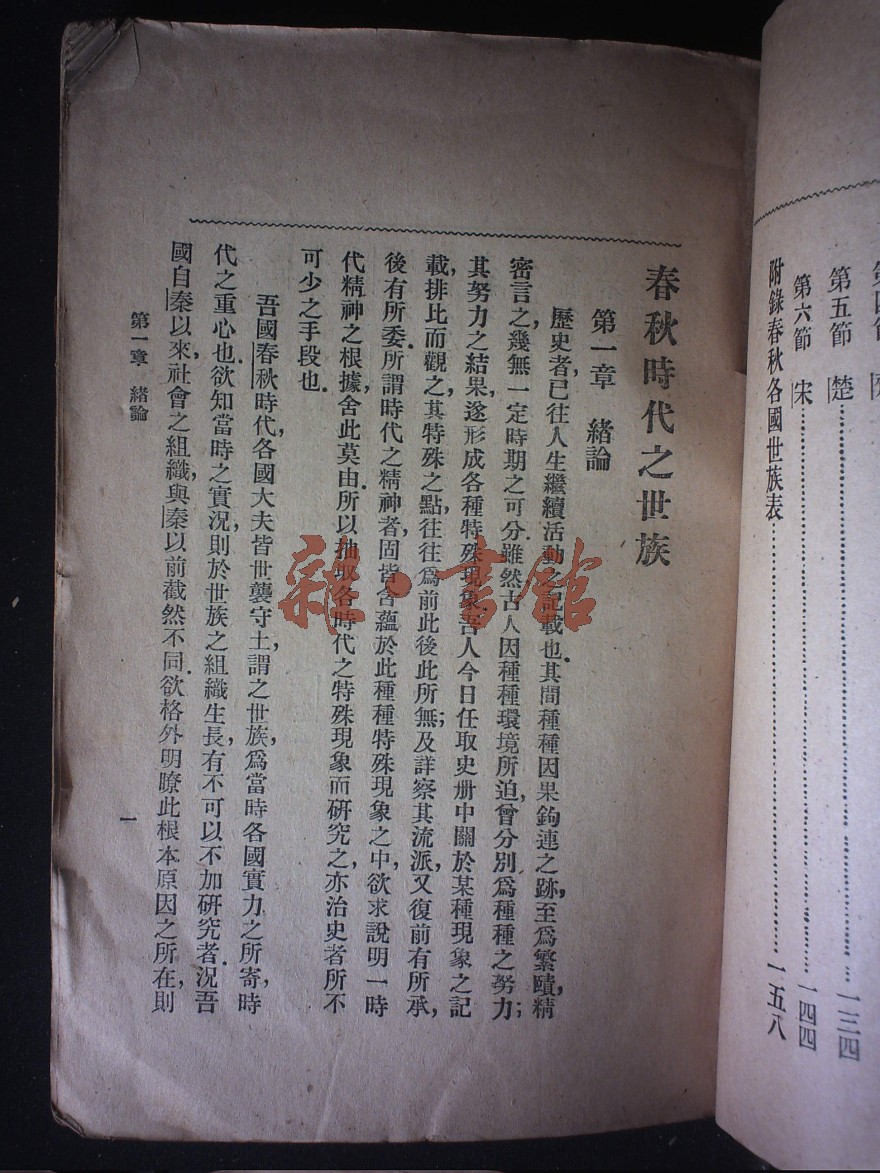 第五節　楚…一三四
第六節　宋…一四四
附錄春秋各國世族表…一五八
春秋時代之世族
第一章　緒論
歷史者,已往人生繼續活動之記載也.其間種種因果鉤連之跡,至爲繁賾,精
密言之,幾無一定時期之可分.雖然古人因種種環境所迫,曾分別爲種種之努力;
其努力之結果,遂形成各種特殊現象.吾人今日任取史册中關於某種現象之記
載,排比而觀之,其特殊之點,往往爲前此後此所無;及詳察其流派,又復前有所承,
後有所委.所謂時代之精神者,固皆含蘊於此種種特殊現象之中,欲求說明一時
代精神之根據,舍此莫由.所以抽取各時代之特殊現象而研究之,亦治史者所不
可少之手段也.
吾國春秋時代,各國大夫皆世襲守土,謂之世族,爲當時各國實力之所寄,時
代之重心也.欲知當時之實況,則於世族之組織生長,有不可以不加研究者.況吾
國自秦以來,社會之組織,與秦以前截然不同.欲格外明瞭此根本原因之所在,則
第一章　緒論
一
雜·書館